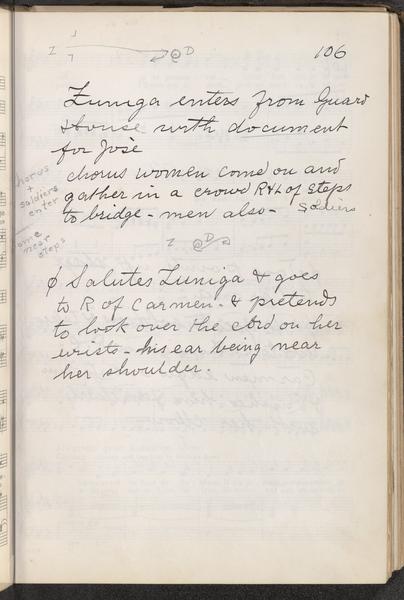 106
Zuniga enters from Guard
House with document
for José
chorus women come on and
gather in a crowd R & L of steps
to bridge - men also - Soldiers
chorus
+
soldiers
enter
come
near
steps
φ Salutes Zuniga & goes
to R of Carmen - & pretends
to look over the cord on her
wrists - his ear being near
her shoulder.